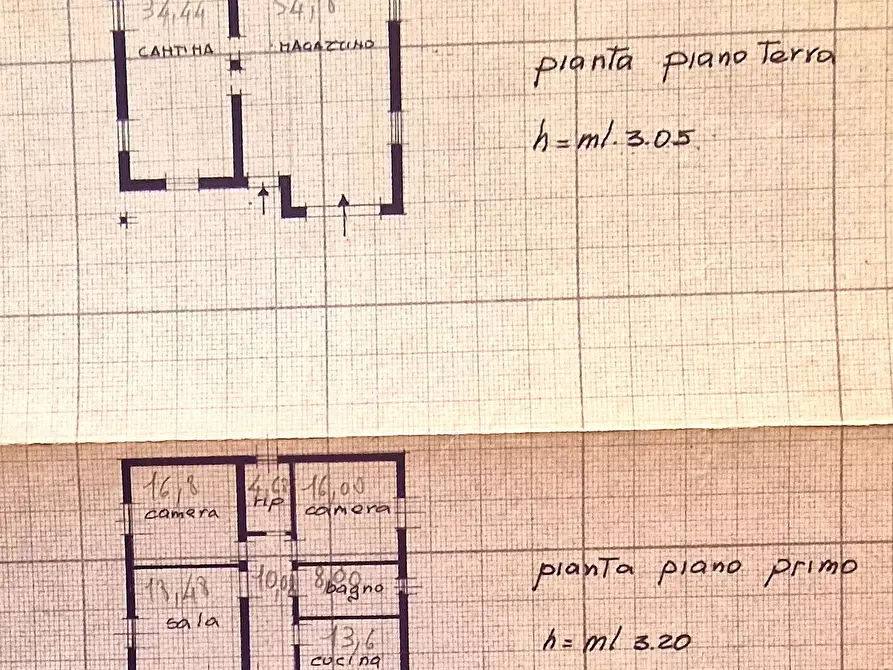 34,44
CANTINA
MAGAZZINO
pianta piano Terra
h = ml. 3.05
16,8
camera
4,68
rip
16,00
camera
18,48
sala
8,00
bagno
13,6
cucina
pianta piano primo
h = ml 3.20